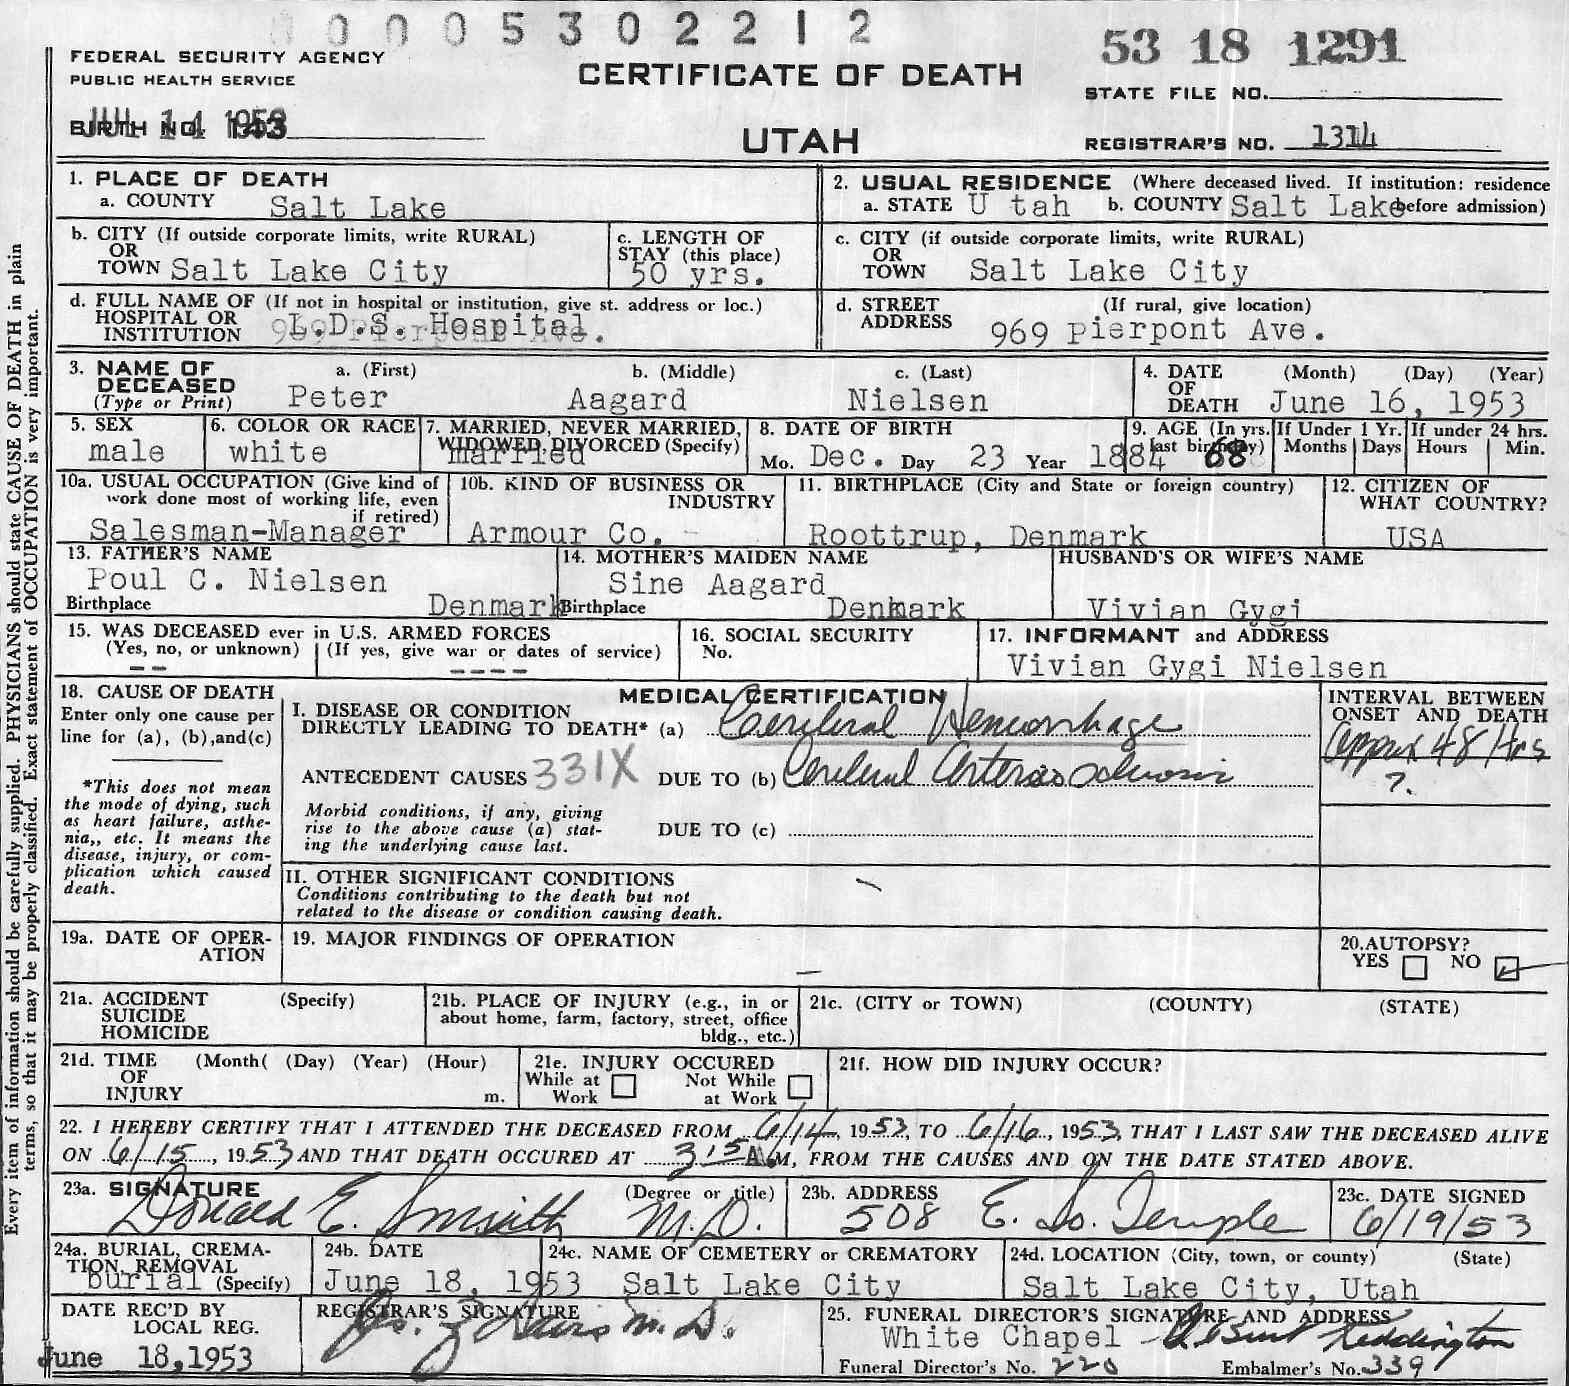 0000530221 2
53 18 1291
FEDERAL SECURITY AGENCY
PUBLIC HEALTH SERVICE
CERTIFICATE OF DEATH
STATE FILE NO.
JUL 14 1953
BIRTH NO. 143
UTAH
REGISTRAR'S NO. 1314
Every item of information should be carefully supplied. PHYSICIANS should state CAUSE OF DEATH in plain
terms, so that it may be properly classified. Exact statement of OCCUPATION is very important.
1. PLACE OF DEATH
a. COUNTY Salt Lake
2. USUAL RESIDENCE (Where deceased lived. If institution: residence
a. STATE U tah b. COUNTY Salt Lake before admission)
b. CITY (If outside corporate limits, write RURAL)
OR
TOWN Salt Lake City
c. LENGTH OF
STAY (this place)
50 yrs.
c. CITY (if outside corporate limits, write RURAL)
OR
TOWN Salt Lake City
d. FULL NAME OF (If not in hospital or institution, give st. address or loc.)
HOSPITAL OR
INSTITUTION L.D.S. Hospital.
d. STREET (If rural, give location)
ADDRESS 969 Pierpont Ave.
3. NAME OF
DECEASED
(Type or Print)
a. (First) b. (Middle) c. (Last)
Peter Aagard Nielsen
4. DATE (Month) (Day) (Year)
OF
DEATH June 16, 1953
5. SEX
male
6. COLOR OR RACE
white
7. MARRIED, NEVER MARRIED,
WIDOWED, DIVORCED (Specify)
married
8. DATE OF BIRTH
Mo. Dec. Day 23 Year 1884
9. AGE (In yrs.
last birthday)
68
If Under 1 Yr.
Months Days
If under 24 hrs.
Hours Min.
10a. USUAL OCCUPATION (Give kind of
work done most of working life, even
if retired)
Salesman-Manager
10b. KIND OF BUSINESS OR
INDUSTRY
Armour Co. -
11. BIRTHPLACE (City and State or foreign country)
Roottrup, Denmark
12. CITIZEN OF
WHAT COUNTRY?
USA
13. FATHER'S NAME
Poul C. Nielsen
Birthplace Denmark
14. MOTHER'S MAIDEN NAME
Sine Aagard
Birthplace Denmark
HUSBAND'S OR WIFE'S NAME
Vivian Gygi
15. WAS DECEASED ever in U.S. ARMED FORCES
(Yes, no, or unknown) (If yes, give war or dates of service)
-- ----
16. SOCIAL SECURITY
No.
17. INFORMANT and ADDRESS
Vivian Gygi Nielsen
18. CAUSE OF DEATH
Enter only one cause per
line for (a), (b),and(c)
*This does not mean
the mode of dying, such
as heart failure, asthe-
nia,, etc. It means the
disease, injury, or com-
plication which caused
death.
MEDICAL CERTIFICATION
I. DISEASE OR CONDITION
DIRECTLY LEADING TO DEATH* (a) Cerebral Hemorrhage
ANTECEDENT CAUSES 331X DUE TO (b) Cerebral Arteriosclerosis
Morbid conditions, if any, giving
rise to the above cause (a) stat-
ing the underlying cause last.
DUE TO (c)
INTERVAL BETWEEN
ONSET AND DEATH
Approx 48 Hrs
?.
II. OTHER SIGNIFICANT CONDITIONS
Conditions contributing to the death but not
related to the disease or condition causing death.
19a. DATE OF OPER-
ATION
19. MAJOR FINDINGS OF OPERATION
20. AUTOPSY?
YES NO
21a. ACCIDENT (Specify)
SUICIDE
HOMICIDE
21b. PLACE OF INJURY (e.g., in or
about home, farm, factory, street, office
bldg., etc.)
21c. (CITY or TOWN) (COUNTY) (STATE)
21d. TIME (Month( (Day) (Year) (Hour)
OF
INJURY m.
21e. INJURY OCCURED
While at Work Not While at Work
21f. HOW DID INJURY OCCUR?
22. I HEREBY CERTIFY THAT I ATTENDED THE DECEASED FROM 6/14, 1953, TO 6/16, 1953, THAT I LAST SAW THE DECEASED ALIVE
ON 6/15, 1953 AND THAT DEATH OCCURED AT 3 15 A.M, FROM THE CAUSES AND ON THE DATE STATED ABOVE.
23a. SIGNATURE (Degree or title)
Donald E. Smith M.D.
23b. ADDRESS
508 E. So. Temple
23c. DATE SIGNED
6/19/53
24a. BURIAL, CREMA-
TION, REMOVAL
burial (Specify)
24b. DATE
June 18, 1953
24c. NAME OF CEMETERY or CREMATORY
Salt Lake City
24d. LOCATION (City, town, or county) (State)
Salt Lake City, Utah
DATE REC'D BY
LOCAL REG.
June 18,1953
REGISTRAR'S SIGNATURE
M.D.
25. FUNERAL DIRECTOR'S SIGNATURE AND ADDRESS
White Chapel Reddington
Funeral Director's No. 220 Embalmer's No. 339